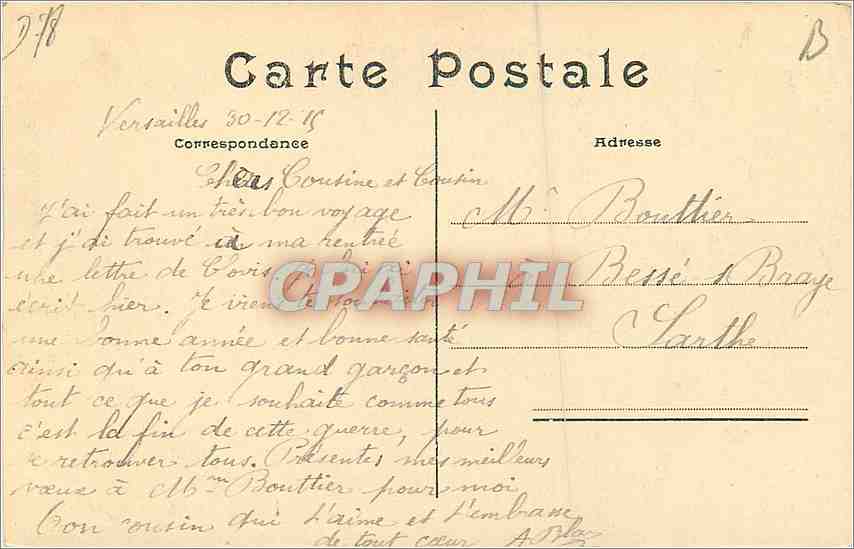 B
Carte Postale
Versailles 30-12-15
Correspondance
Adresse
Chers Cousine et Cousin
J'ai fait un très bon voyage
et j'ai trouvé à ma rentrée
une lettre de Clovis je lui ai
écrit hier. Je viens te souhaiter
une bonne année et bonne santé
ainsi qu'à ton grand garçon et
tout ce que je souhaite comme tous
c'est la fin de cette guerre, pour
se retrouver tous. Présentes mes meilleurs
vœux à Mme Bouttier pour moi
Ton cousin qui t'aime et t'embrasse
de tout cœur A.
Mr Bouttier
à Bessé s Braye
Sarthe
CPAPHIL